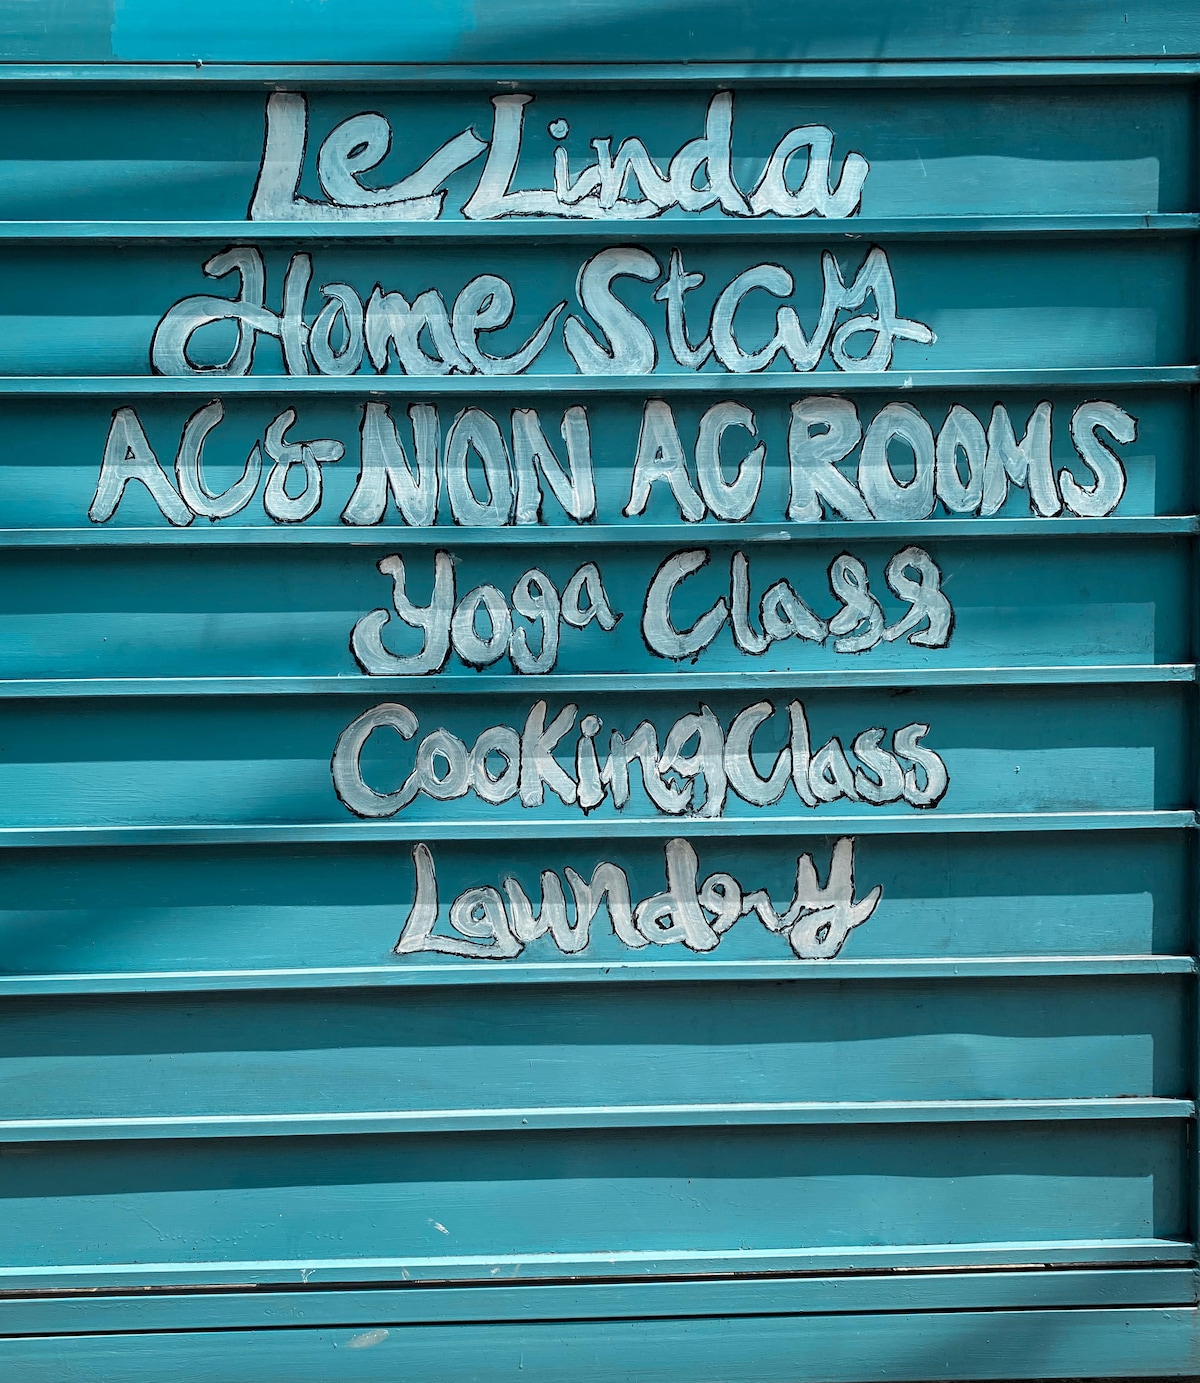 Le Linda
Home Stay
AC & NON AC ROOMS
Yoga Class
Cooking Class
Laundry